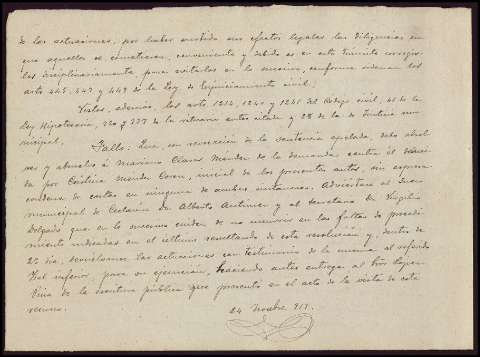 de las actuaciones, por haber surtido sus efectos legales las diligencias en
que aquellas se cometieron, conveniente y debido es en este trámite corregir-
las disciplinariamente para evitarlas en lo sucesivo, conforme ordenan los
arts 445, 447 y 449 de la Ley de Enjuiciamiento civil;
Vistos, además, los arts 1214, 1240 y 1241 del Código civil; 41 de la
Ley Hipotecaria, 220 y 337 de la rituaria antes citada y 28 de la de Justicia mu-
nicipal,
Fallo: Que, con revocación de la sentencia apelada, debo absol-
ver y absuelvo á Mariano Claver Mendez de la demanda contra él
da por Mendez inicial de los presentes autos, sin expresa
condena de costas en ninguna de ambas instancias. Adviértase al Juez
municipal de Alberto y al Secretario Virgilio
Delgado que en lo sucesivo cuiden de no incurrir en las faltas de procedi-
miento indicadas en el último resultando de esta resolución y, dentro de
2º día, devuélvanse las actuaciones con testimonio de la misma al referido
Tral inferior, para su ejecución, haciendo antes entrega al Prior
de la escritura pública que presentó en el acto de la vista de este
recurso.
24 Novbre 917.